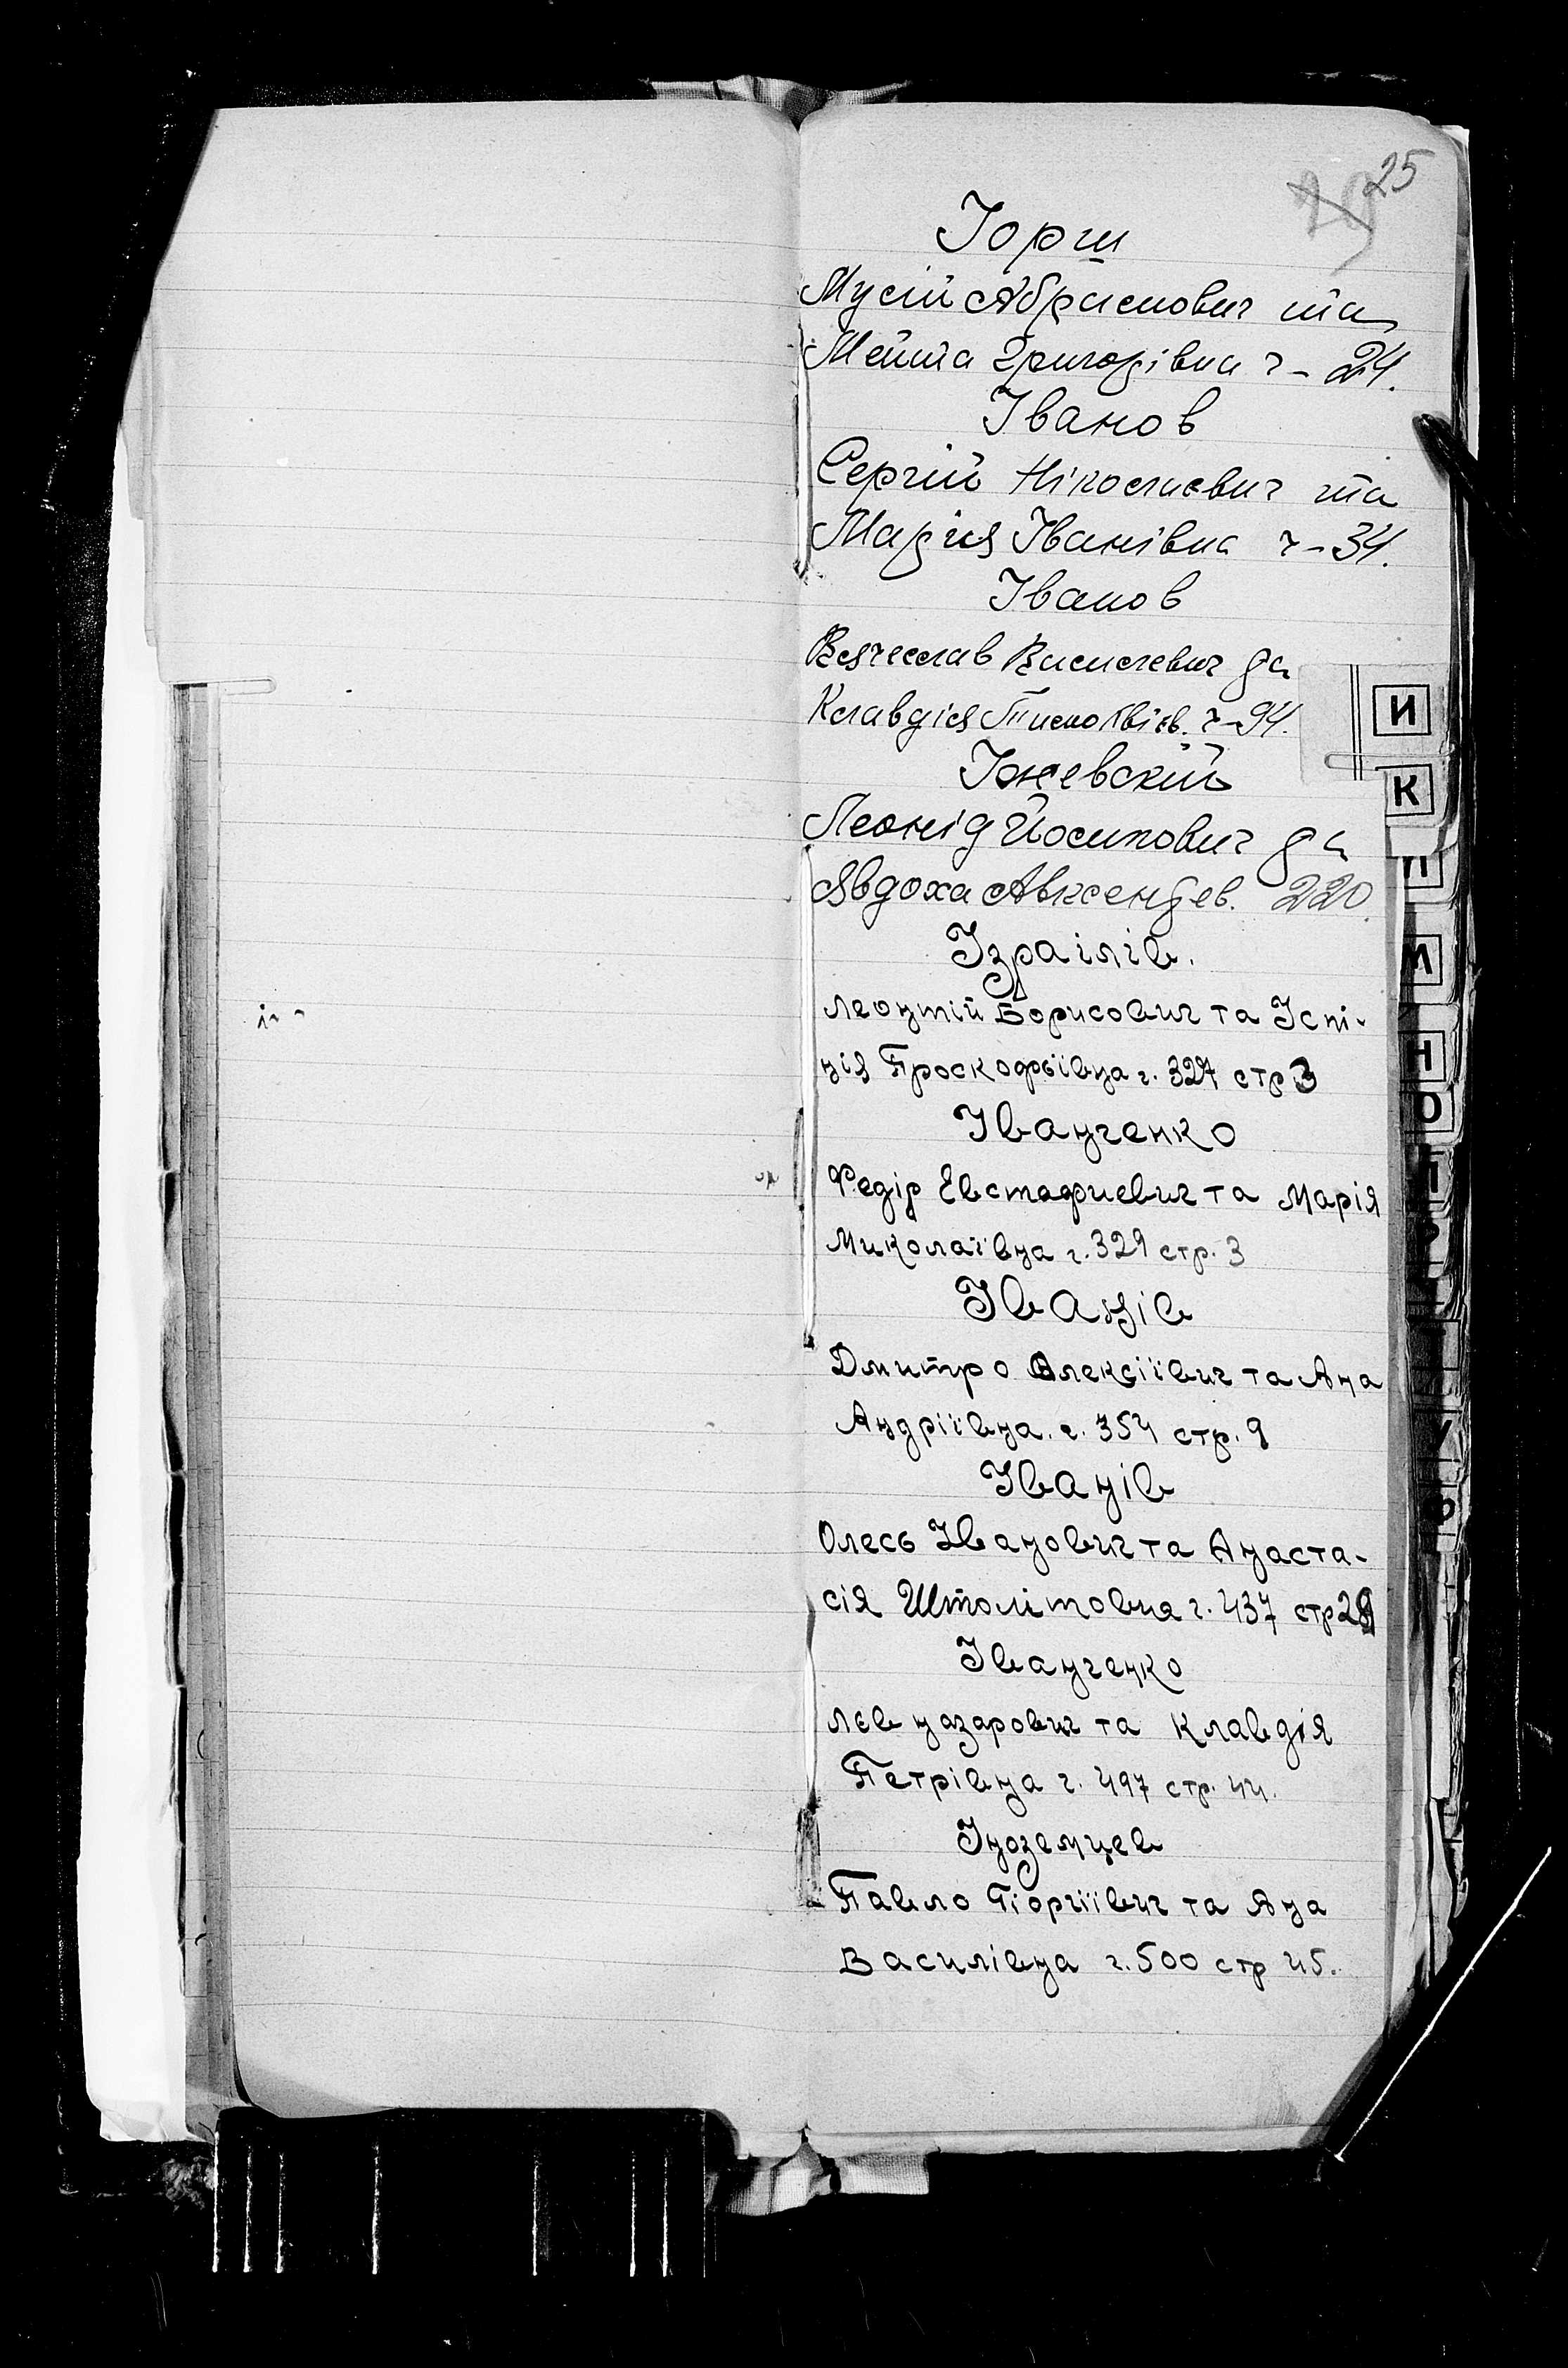 25
Іорш
Мусій Абрамович та
Мейта Григорівна ч - 24.
Іванов
Сергій Ніколаєвич та
Марія Іванівна ч - 34.
Іванов
Вячеслав Васильевич да
Клавдія ч - 94.
И
Іжевскій
К
Леонід Йосипович да
Явдоха Авксендев. 220.
Л
Ізраілів.
М
Леонтій Борисович та Іспі-
нія Проскофьівна ч. 327 стр 3
Н
О
Іванченко
Федір Евстафиевич та Марія
Миколаївна ч. 329 стр. 3
Іванів
Дмитро Алексіївич та Ана
Андріївна. ч. 354 стр. 9
У
Іванів
Ф
Олесь Іванович та Анаста-
сія ч. 437 стр
Іванченко
Лєв Назарович та Клавдія
Петрівна ч. 497 стр. 44.
Іноземцев
Павло Гіоргіївич та Ана
Василівна ч. 500 стр 45.